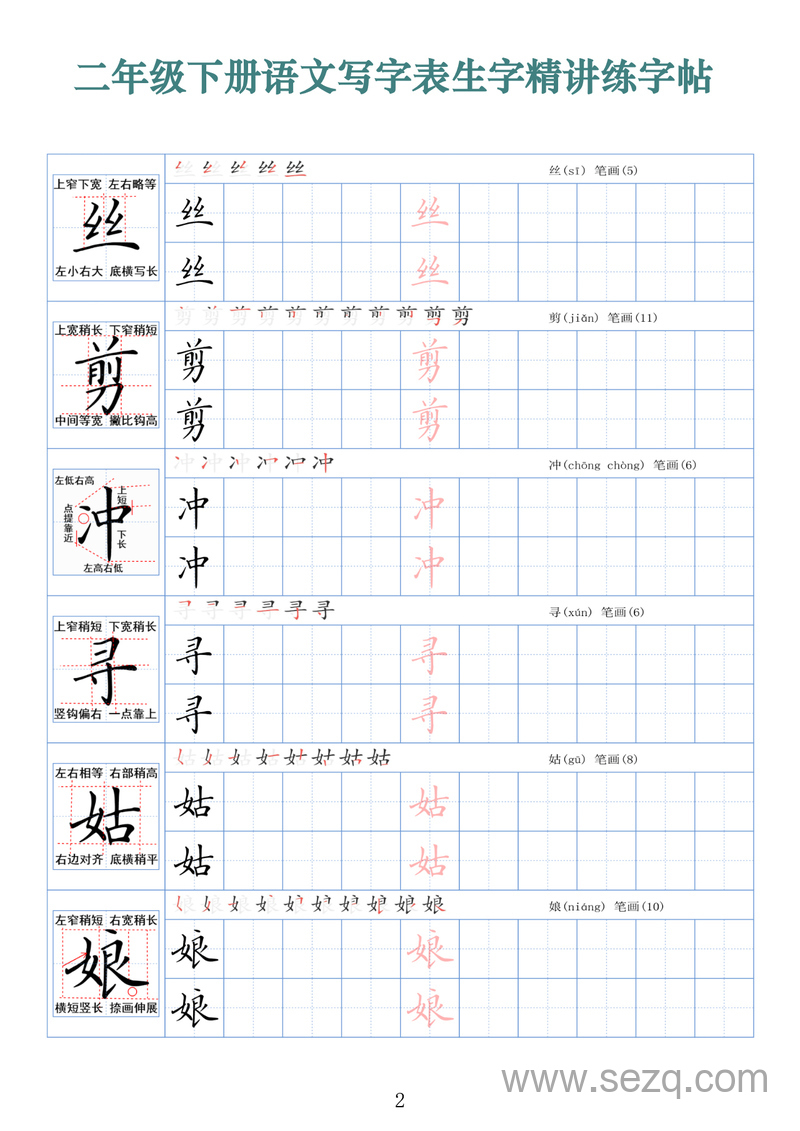 二年级下册语文写字表生字精讲练字帖
丝 丝 丝 丝 丝 丝(sī) 笔画(5)
上窄下宽 左右略等
丝
左小右大 底横写长
丝 丝
丝 丝
剪 剪 剪 剪 剪 剪 剪 剪 剪 剪 剪 剪(jiǎn) 笔画(11)
上宽稍长 下窄稍短
剪
中间等宽 撇比钩高
剪 剪
剪 剪
冲 冲 冲 冲 冲 冲 冲(chōng chòng) 笔画(6)
左低右高
上短
点提靠近
冲
下长
左高右低
冲 冲
冲 冲
寻 寻 寻 寻 寻 寻 寻(xún) 笔画(6)
上窄稍短 下宽稍长
寻
竖钩偏右 一点靠上
寻 寻
寻 寻
姑 姑 姑 姑 姑 姑 姑 姑 姑(gū) 笔画(8)
左右相等 右部稍高
姑
右边对齐 底横稍平
姑 姑
姑 姑
娘 娘 娘 娘 娘 娘 娘 娘 娘 娘 娘(niáng) 笔画(10)
左窄稍短 右宽稍长
娘
横短竖长 捺画伸展
娘 娘
娘 娘
www.sezq.com
2